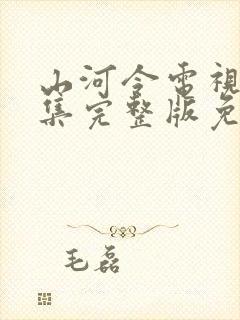 山河令电視
集完整版免
毛磊